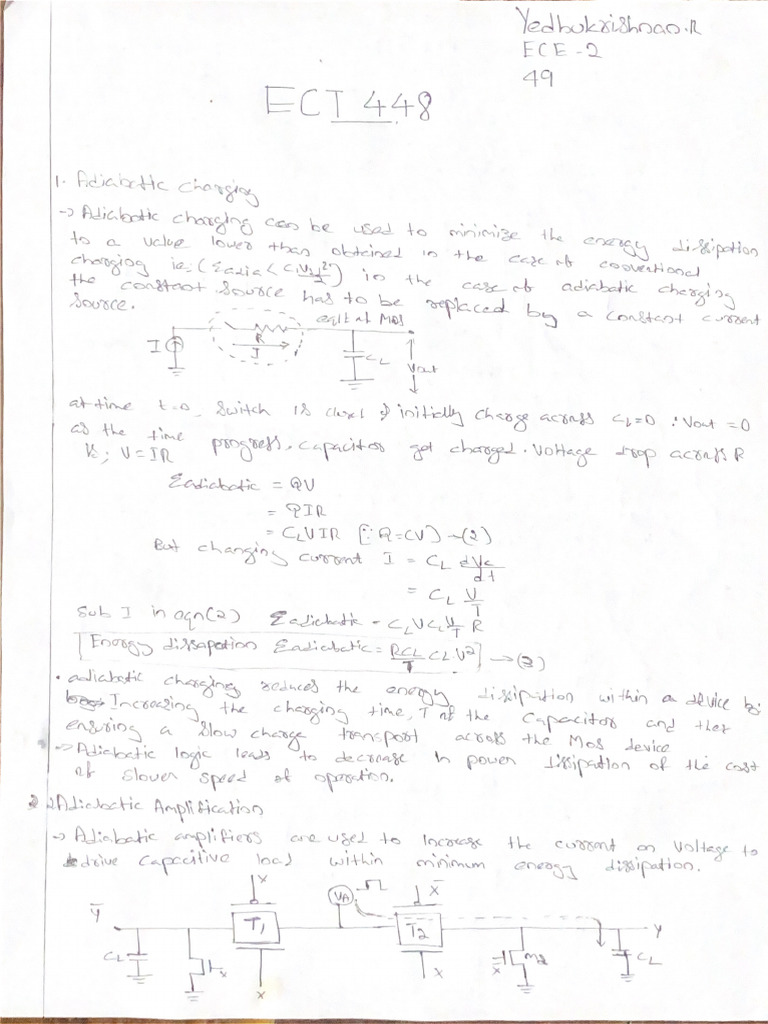 Yedhukrishnan.R
ECE-2
49
ECT 448
1. Adiabatic Charging
→ Adiabatic charging can be used to minimize the energy dissipation
to a value lower than obtained in the case of conventional
charging ie. (Eadia < CLVdd²/2) in the case of adiabatic charging
the constant source has to be replaced by a constant current
source.
eqlt of MOS
I
R
I
CL
Vout
at time t=0, switch is closed & initially charge across CL=0 ∴ Vout = 0
as the time progress. capacitor got charged. Voltage drop across R
is; V=IR
Eadiabatic = QV
= QIR
= CLVIR [∵ Q=CV] —(2)
But changing current I = CL dVc/dt
= CL V/T
Sub I in eqn(2) Eadiabatic = CLVCL V/T R
[Energy dissapation Eadiabatic = RCL/T CLV²] →(3)
• adiabatic charging reduces the energy dissipation within a device by
Increasing the charging time, T of the Capacitor and ther
ensuring a slow charge transport across the MOS device
→ Adiabatic logic leads to decrease in power dissipation of the cost
of slower speed of operation.
2 Adiabatic Amplification
→ Adiabatic amplifiers are used to Increase the current on voltage to
drive capacitive load within minimum energy dissipation.
X
VA
X̅
Y̅
T1
T2
Y
CL
X
X̅
M2
CL
X
X